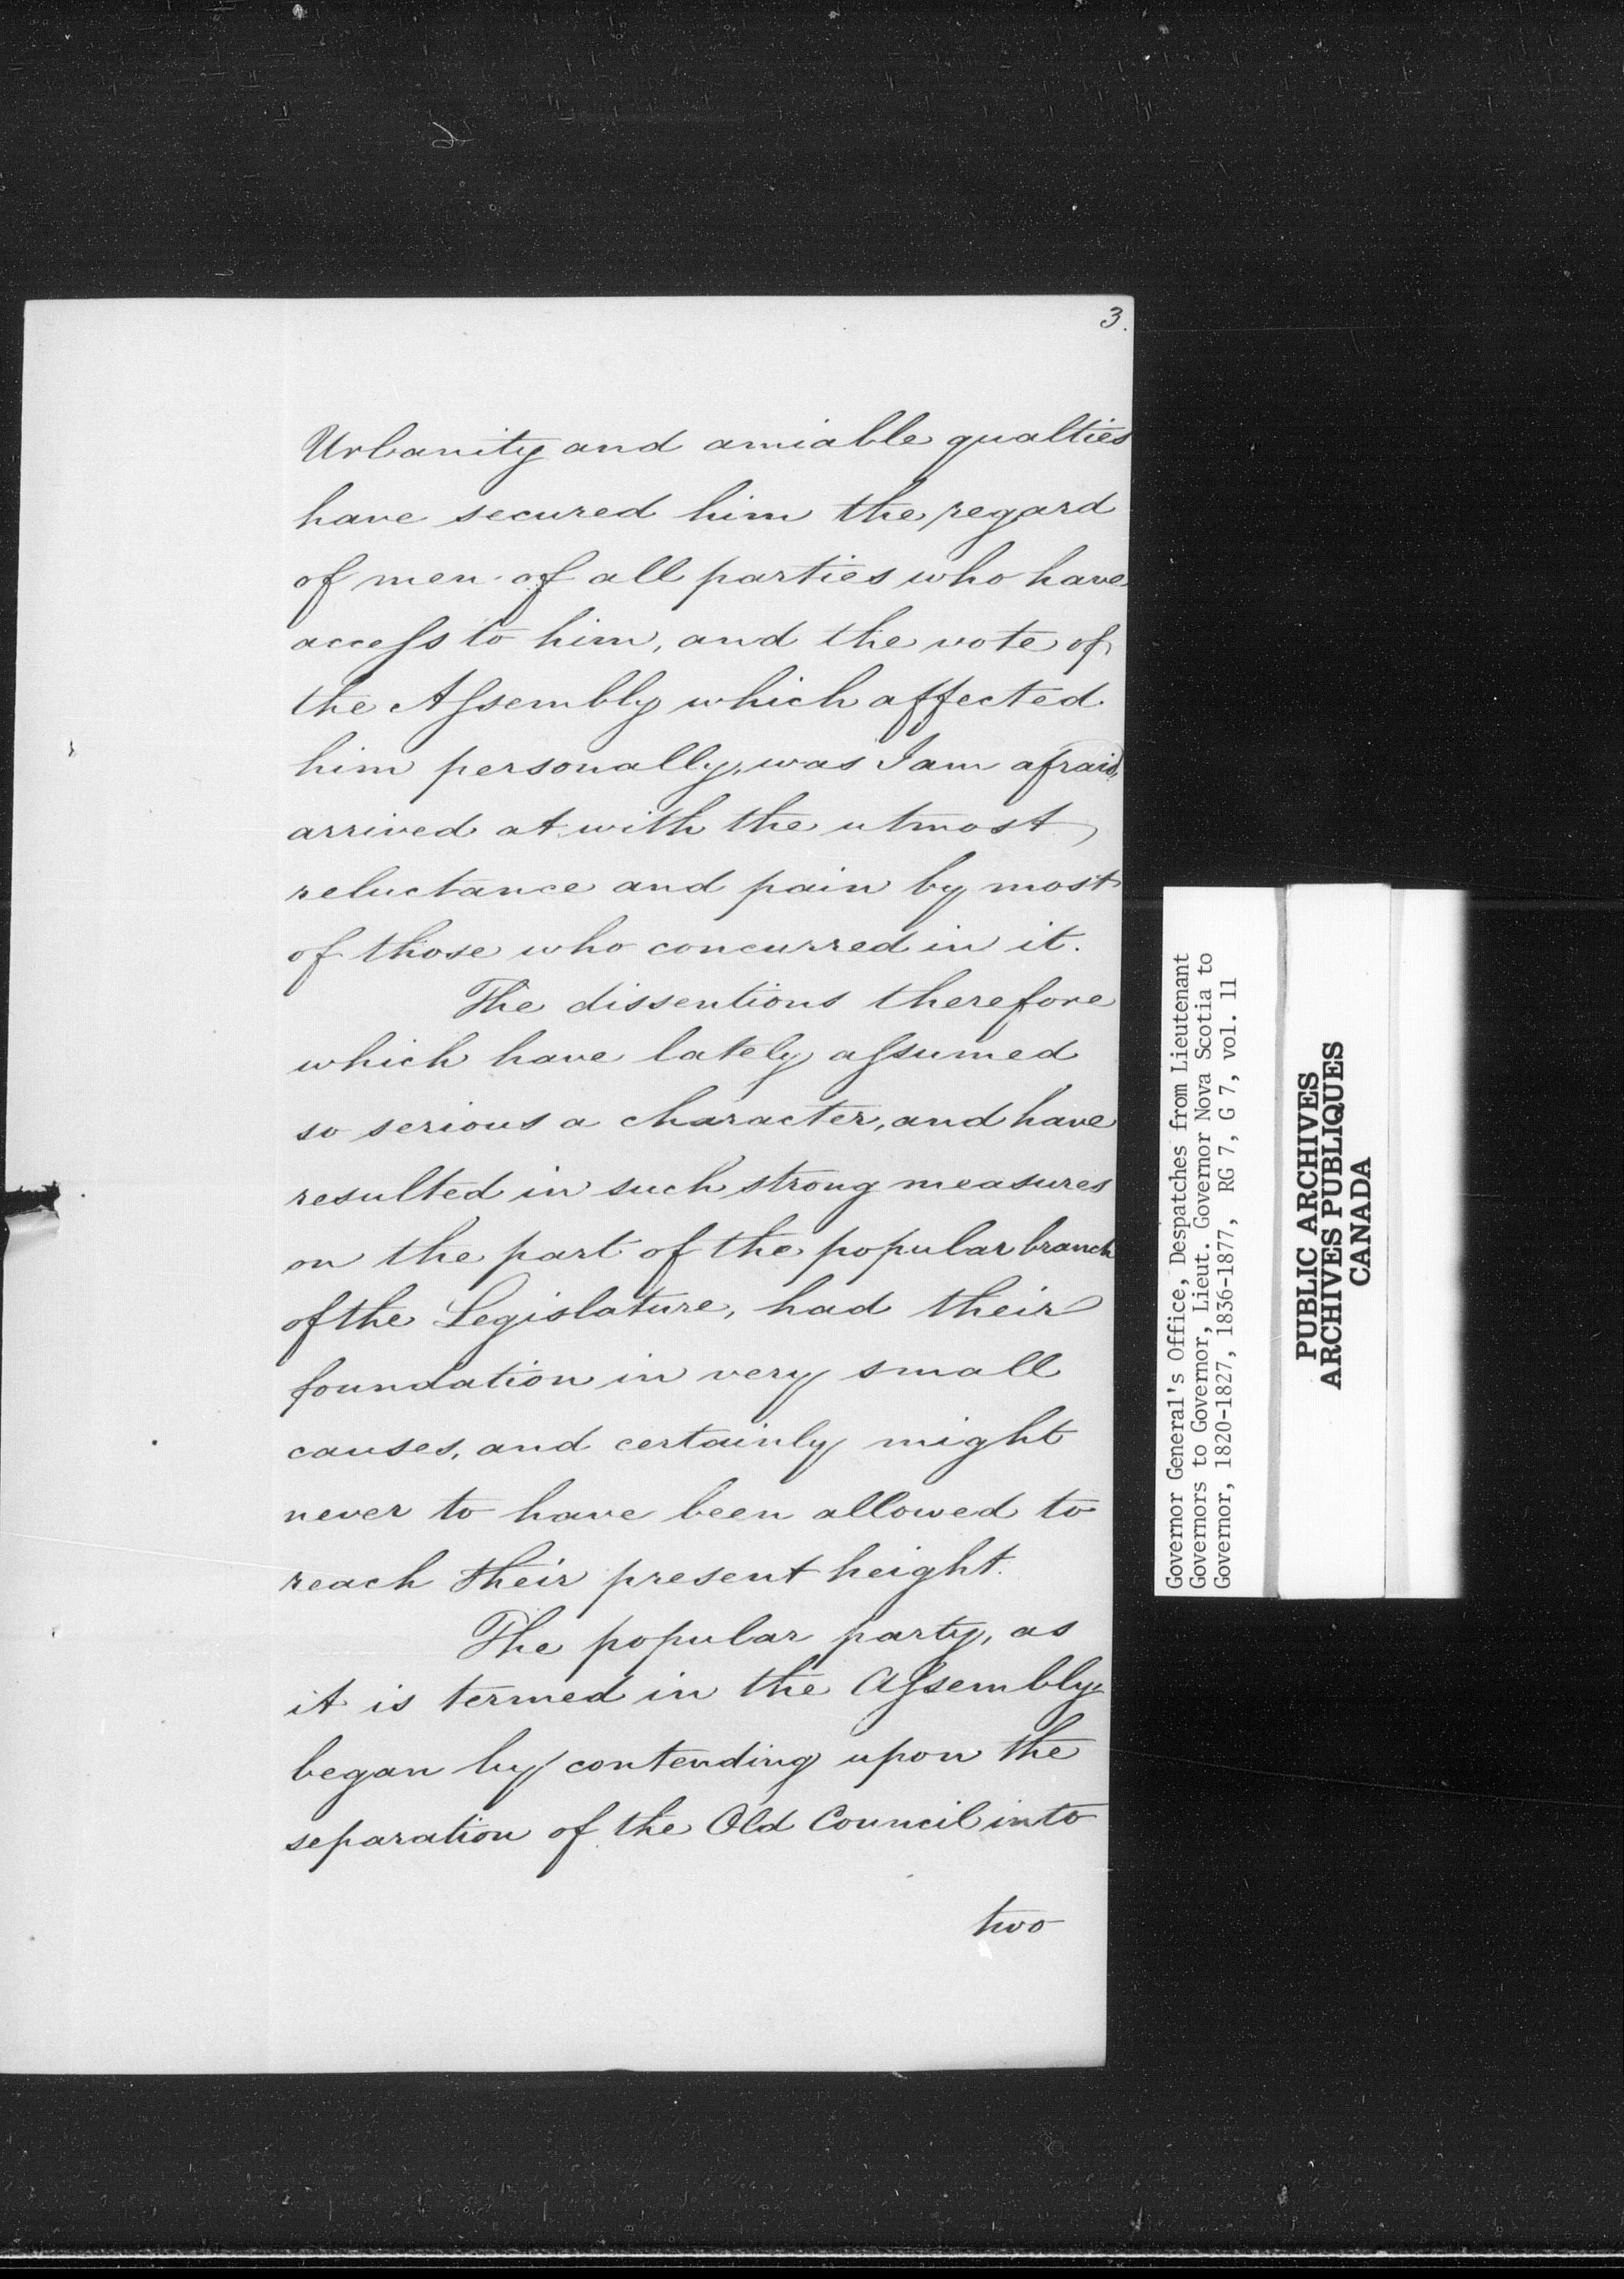 3.
Urbanity and amiable qualties
have secured him the regard
of men of all parties who have
access to him, and the vote of
the Assembly which affected
him personally, was I am afraid,
arrived at with the utmost
reluctance and pain by most
of those who concurred in it.
The dissentions therefore
which have lately assumed
so serious a character, and have
resulted in such strong measures
on the part of the popular branch
of the Legislature, had their
foundation in very small
causes, and certainly might
never to have been allowed to
reach their present height.
The popular party, as
it is termed in the Assembly,
began by contending upon the
separation of the Old Council into
two
Governor General's Office, Despatches from Lieutenant
Governors to Governor, Lieut. Governor Nova Scotia to
Governor, 1820-1827, 1836-1877, RG 7, G 7, vol. 11
PUBLIC ARCHIVES
ARCHIVES PUBLIQUES
CANADA